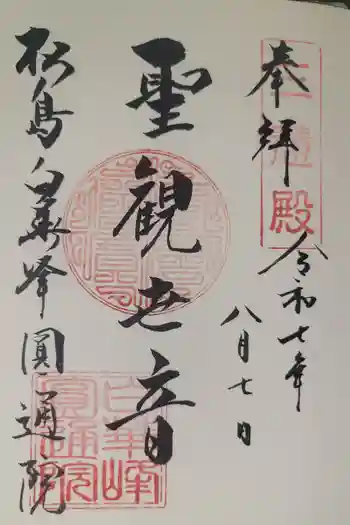 奉拝
令和七年
八月七日
聖観世音
松島白華峰圓通院
三慧殿
白華峰圓通院